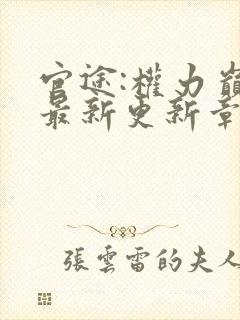 官途:權力巔
最新更新章
張雲雷的夫人